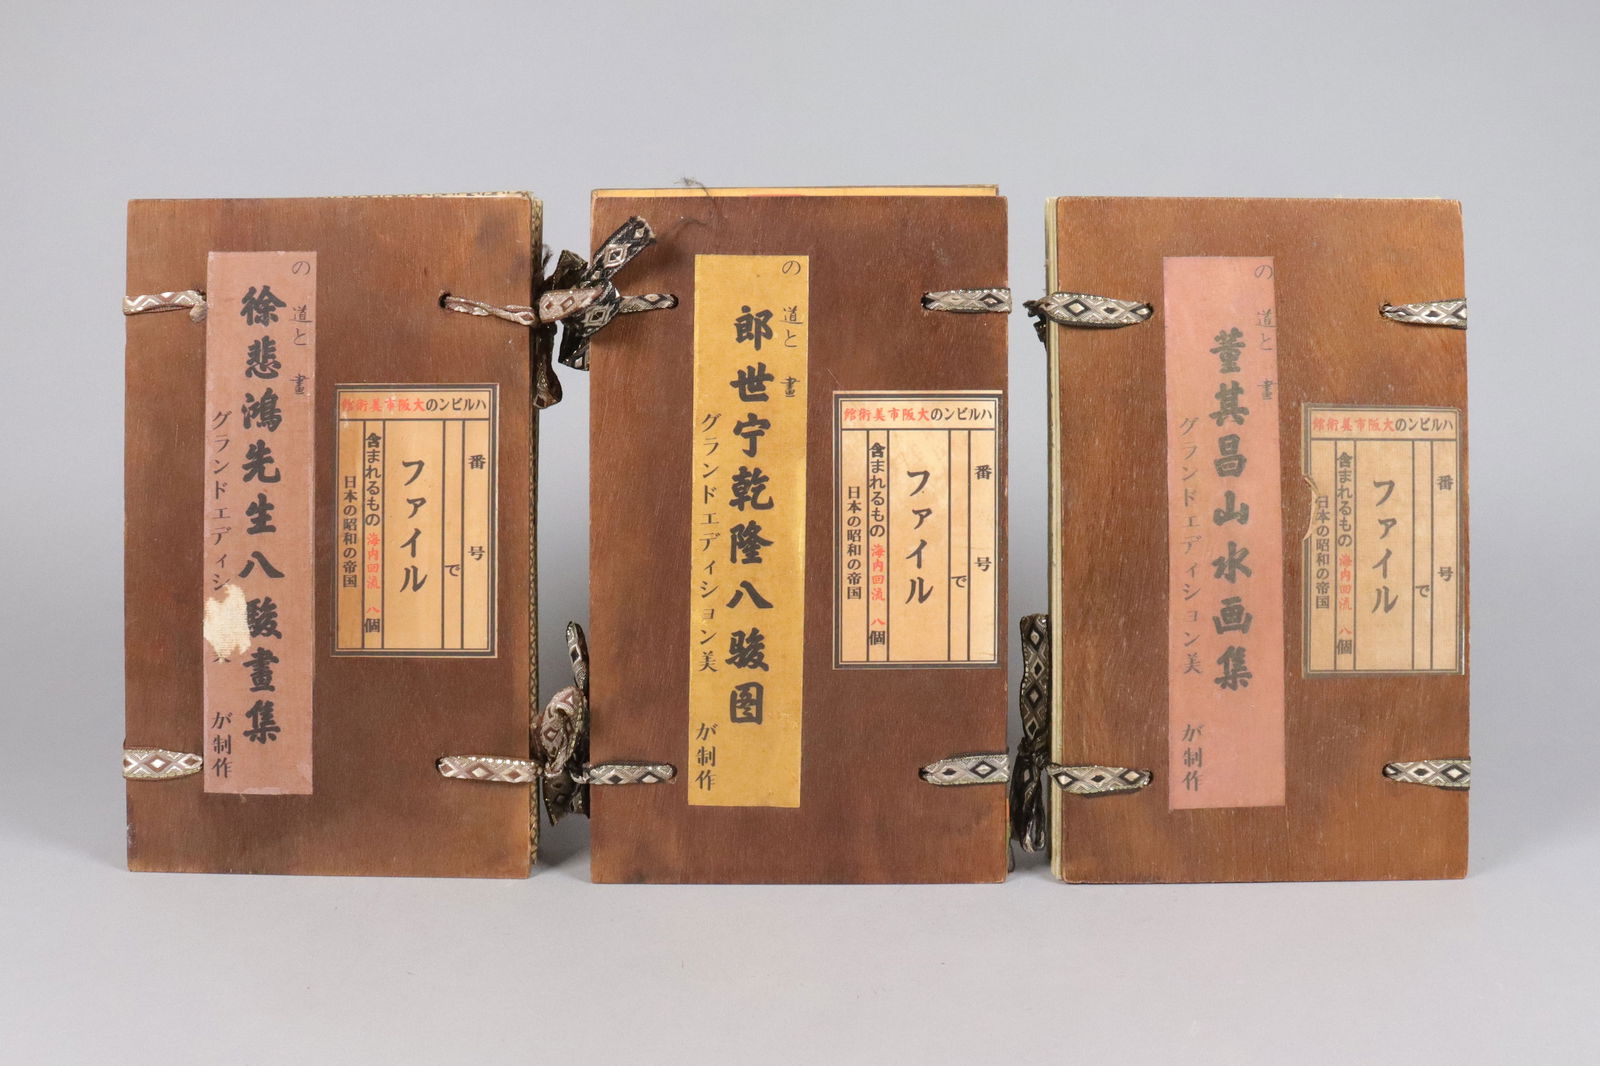 の 道と 畫
徐悲鴻先生八駿畫集
グランドエディシ
が制作
ハルビンの大阪市美術館
番 号
で
ファイル
含まれるもの 海内回流 八個
日本の昭和の帝国
の 道と 畫
郎世宁乾隆八駿图
グランドエディション美 が制作
ハルビンの大阪市美術館
番 号
で
ファイル
含まれるもの 海内回流 八個
日本の昭和の帝国
の 道と 畫
董其昌山水画集
グランドエディション美 が制作
ハルビンの大阪市美術館
番 号
で
ファイル
含まれるもの 海内回流 八個
日本の昭和の帝国